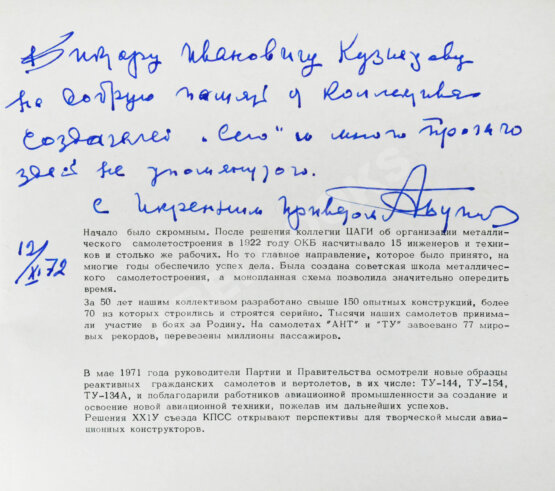 Виктору Ивановичу Кузнецову
на добрую память у коллектива
создателей „Сего" и много прочаго
здесь не упомянутого.
с искренним приветом
12/XI 72
Начало было скромным. После решения коллегии ЦАГИ об организации металли-
ческого самолетостроения в 1922 году ОКБ насчитывало 15 инженеров и техни-
ков и столько же рабочих. Но то главное направление, которое было принято, на
многие годы обеспечило успех дела. Была создана советская школа металличес-
кого самолетостроения, а монопланная схема позволила значительно опередить
время.
За 50 лет нашим коллективом разработано свыше 150 опытных конструкций, более
70 из которых строились и строятся серийно. Тысячи наших самолетов принима-
ли участие в боях за Родину. На самолетах "АНТ" и "ТУ" завоевано 77 миро-
вых рекордов, перевезены миллионы пассажиров.
В мае 1971 года руководители Партии и Правительства осмотрели новые образцы
реактивных гражданских самолетов и вертолетов, в их числе: ТУ-144, ТУ-154,
ТУ-134А, и поблагодарили работников авиационной промышленности за создание и
освоение новой авиационной техники, пожелав им дальнейших успехов.
Решения ХХ1У съезда КПСС открывают перспективы для творческой мысли авиа-
ционных конструкторов.